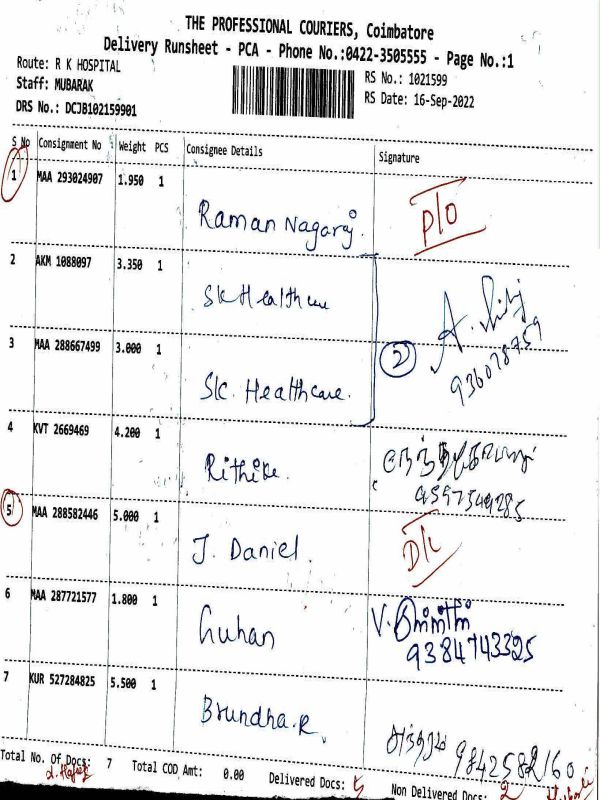 THE PROFESSIONAL COURIERS, Coimbatore
Delivery Runsheet - PCA - Phone No.:0422-3505555 - Page No.:1
Route: R K HOSPITAL
RS No.: 1021599
Staff: MUBARAK
RS Date: 16-Sep-2022
DRS No.: DCJB102159901
S No Consignment No Weight PCS Consignee Details Signature
1 MAA 293024907 1.950 1
Raman Nagaraj P/O
2 AKM 1088097 3.350 1
SK Healthcare
3 MAA 288667499 3.000 1 2
936078759
SK. Healthcare.
4 KVT 2669469 4.200 1
Rithike
9597549285
5 MAA 288582446 5.000 1
J. Daniel. D/L
6 MAA 287721577 1.800 1
Guhan
9384743325
7 KUR 527284825 5.500 1
Brundha.R 9842582160
Total No. Of Docs: 7 Total COD Amt: 0.00 Delivered Docs: 5 Non Delivered Docs: 2